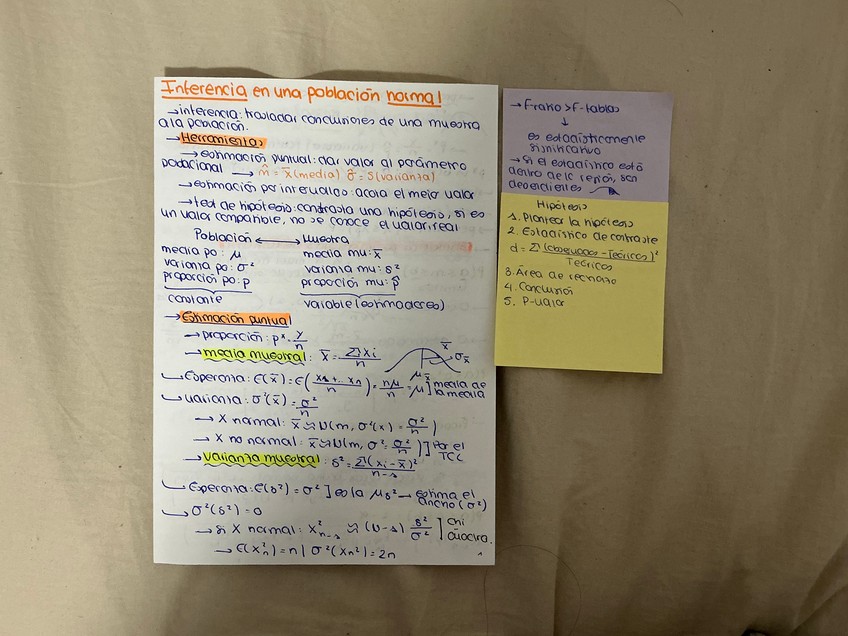 Inferencia en una población normal
→ inferencia: trasladar conclusiones de una muestra
a la población.
→ Herramientas
→ estimación puntual: dar valor al parámetro
poblacional → m̂ = x̄ (media) σ̂ = s (varianza)
→ estimación por intervalos: acota el mejor valor
→ test de hipótesis: contrasta una hipótesis, si es
un valor compatible, no se conoce el valor real
Población ↔ Muestra
media po: μ media mu: x̄
varianza po: σ² varianza mu: s²
proporción po: p proporción mu: p̂
constante variable (estimadores)
→ Estimación puntual
→ proporción: p* = y/n
→ media muestral: x̄ = Σxi / n x̄ σx̄
μx̄
↳ Esperanza: E(x̄) = E((x1 + ... xn)/n) = nμ/n = μ] media de
la media
↳ varianza: σ²(x̄) = σ²/n
→ X normal: x̄ ≈ N(m, σ²(x) = σ²/n)
→ X no normal: x̄ ≈ N(m, σ² = σ²/n)] Por el
TCL
→ varianza muestral: s² = Σ(xi - x̄)² / n-1
↳ Esperanza: E(s²) = σ² ] es la μs² → estima el
ancho (σ²)
↳ σ²(s²) = 0
→ si X normal: X²n-1 ≈ (N-1) s²/σ² ] chi
→ E(X²n) = n | σ²(Xn²) = 2n
1
→ F-ratio > F-tablas
↓
es estadísticamente
significativo
→ Si el estadístico está
dentro de la región, son
dependientes
Hipótesis
1. Plantear la hipótesis
2. Estadístico de contraste
d = Σ(observados - Teóricos)² / Teóricos
3. Área de rechazo
4. Conclusión
5. P-valor